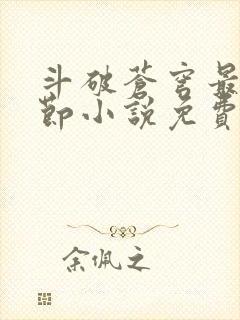 斗破蒼穹最
節小說免費
余佩之